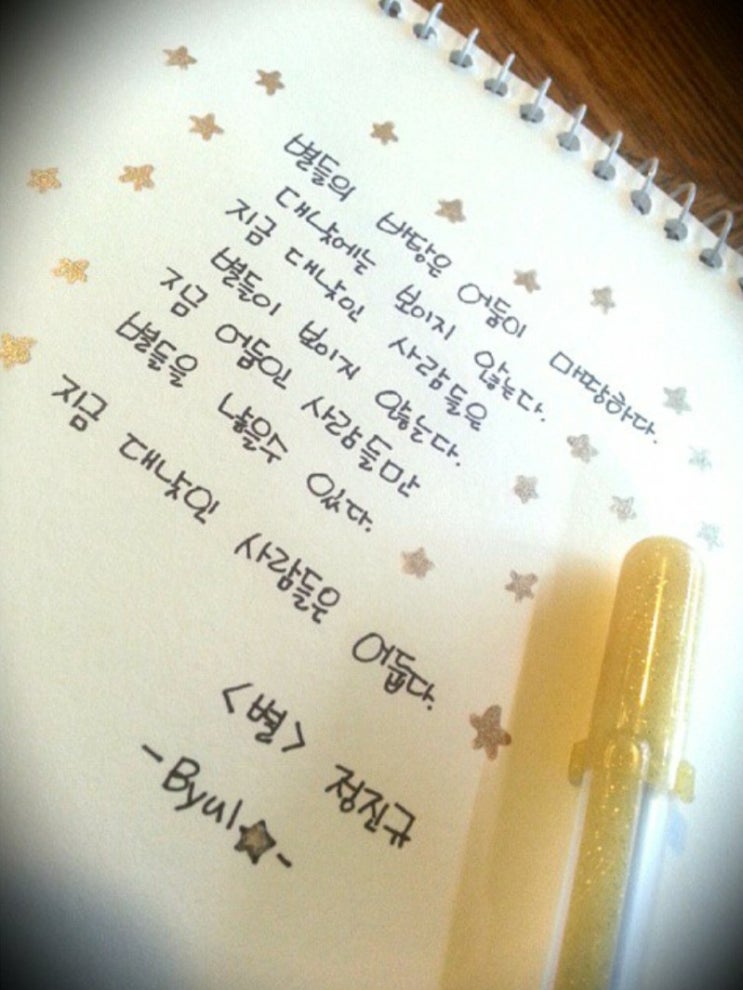 별들의 바탕은 어둠이 마땅하다.
대낮에는 보이지 않는다.
지금 대낮인 사람들은
별들이 보이지 않는다.
지금 어둠인 사람들만
별들을 낳을수 있다.
지금 대낮인 사람들은 어둡다.
<별> 정진규
-Byul★-